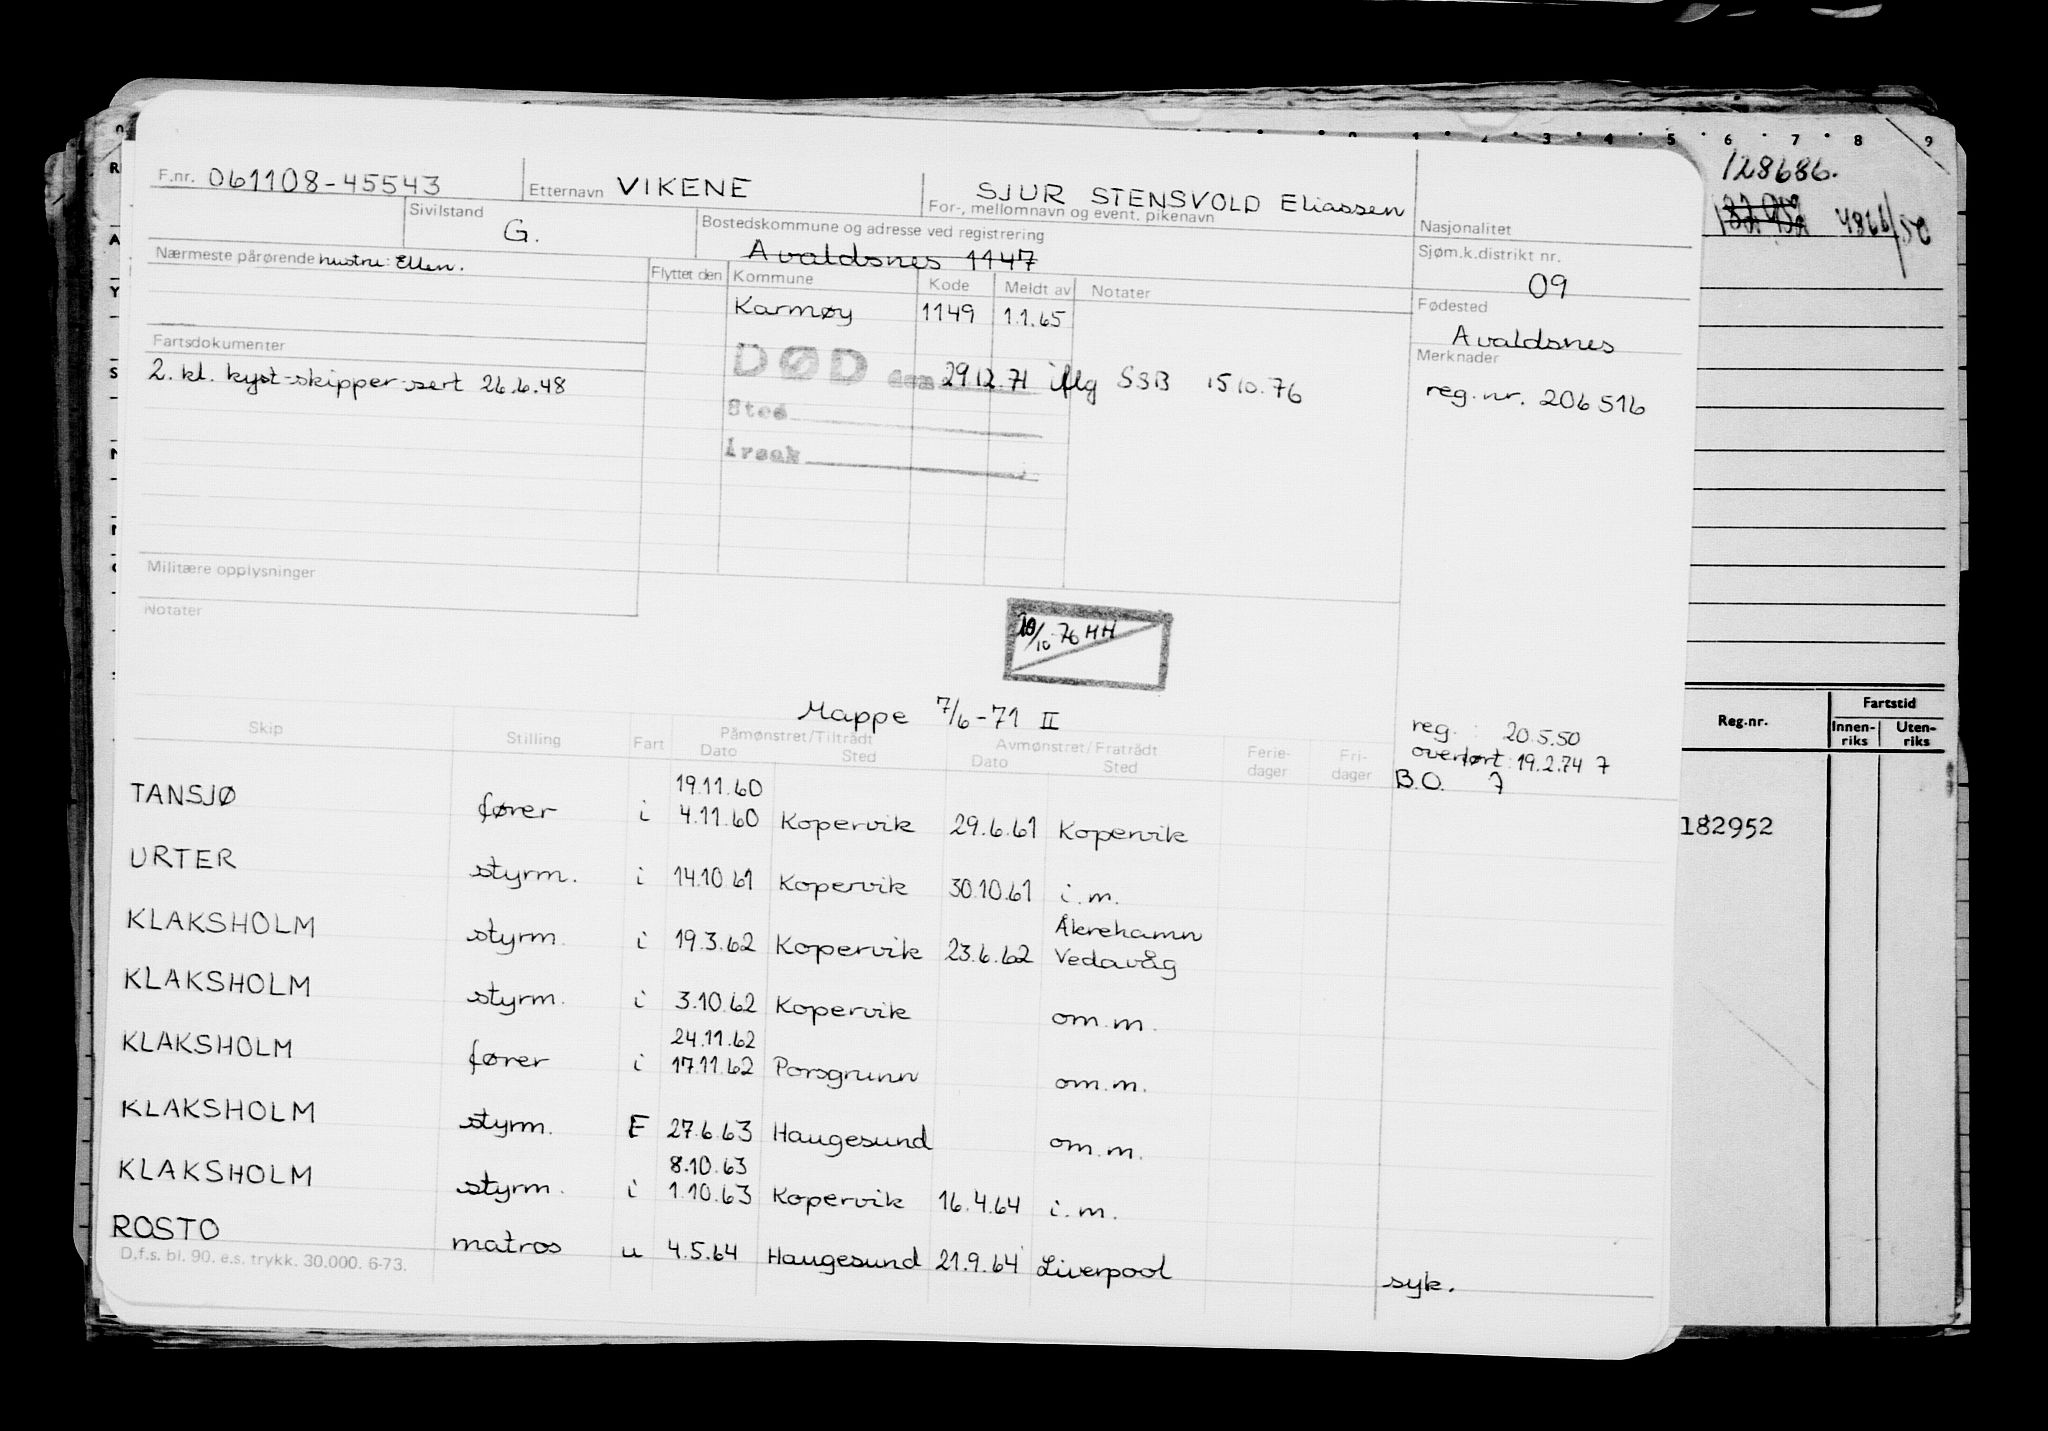 F.nr. 061108-45543 Etternavn VIKENE SJUR STENSVOLD Eliassen
For-, mellomnavn og event. pikenavn
Sivilstand G. Bostedskommune og adresse ved registrering Nasjonalitet
Avaldsnes 1147
Nærmeste pårørende hustru: Ellen. Flyttet den Kommune Kode Meldt av Notater Sjøm.k.distrikt nr.
09
Karmøy 1149 1.1.65 Fødested
Avaldsnes
Fartsdokumenter
DØD den 29.12.71 iflg SSB 15.10.76 Merknader
2. kl. kyst-skipper-sert 26.6.48 reg.nr. 206516
Sted
Årsak
Militære opplysninger
Notater
10/10-76 HH
Mappe 7/6-71 II
reg. : 20.5.50
overført: 19.2.74 7
B.O. 7
Skip Stilling Fart Påmønstret/Tiltrådt Avmønstret/Fratrådt Ferie-dager Fri-dager
Dato Sted Dato Sted
19.11.60
TANSJØ fører i 4.11.60 Kopervik 29.6.61 Kopervik
URTER styrm. i 14.10.61 Kopervik 30.10.61 i.m.
Åkrehamn
KLAKSHOLM styrm. i 19.3.62 Kopervik 23.6.62 Vedavåg
KLAKSHOLM styrm. i 3.10.62 Kopervik om.m.
24.11.62
KLAKSHOLM fører i 17.11.62 Porsgrunn om.m.
KLAKSHOLM styrm. E 27.6.63 Haugesund om.m.
8.10.63
KLAKSHOLM styrm. i 1.10.63 Kopervik 16.4.64 i.m.
ROSTO matros u 4.5.64 Haugesund 21.9.64 Liverpool syk.
D.f.s. bl. 90. e.s. trykk. 30.000. 6-73.
1 2 3 4 5 6 7 8 9
128686.
4866/50
Reg.nr. Fartstid
Innen-riks Uten-riks
182952